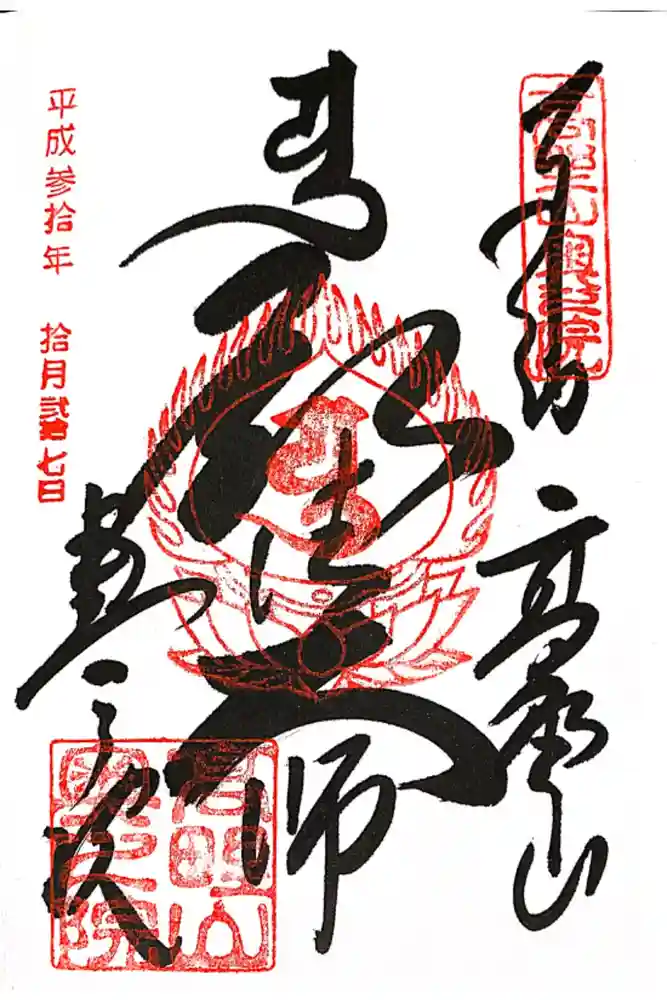 高野山奥之院
高野山
弘法大師
奥之院
高野山奥之院
平成参拾年 拾月弐拾七日